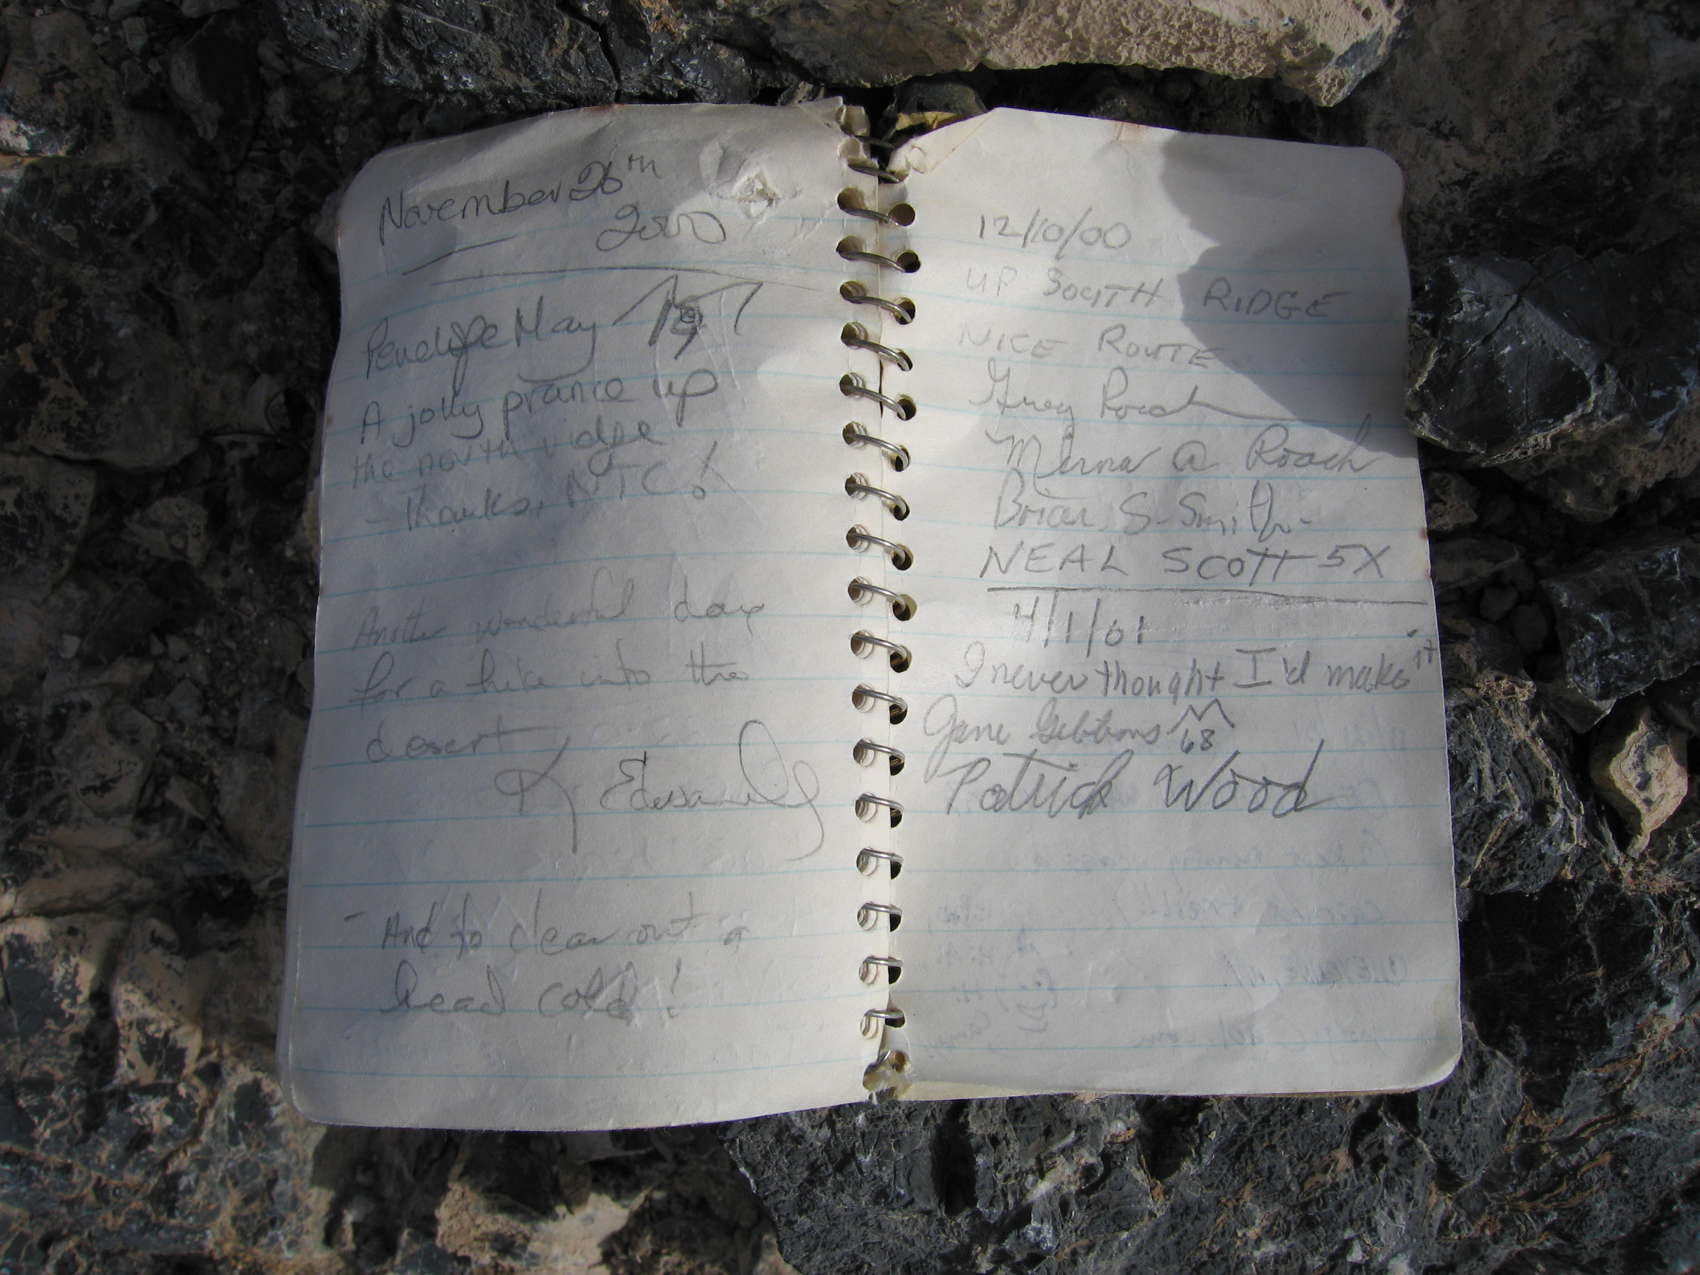 November 26th
2000
Penelope May
A jolly prance up
the north ridge
- thanks, NTC!
Another wonderful day
for a hike into the
desert
K Edwards
- And to clear out a
head cold!
12/10/00
UP SOUTH RIDGE
NICE ROUTE
Gerry Roach
Merna A Roach
Brian S. Smith
NEAL SCOTT 5X
4/1/01
I never thought I'd make it
Gene Gibbons 68
Patrick Wood